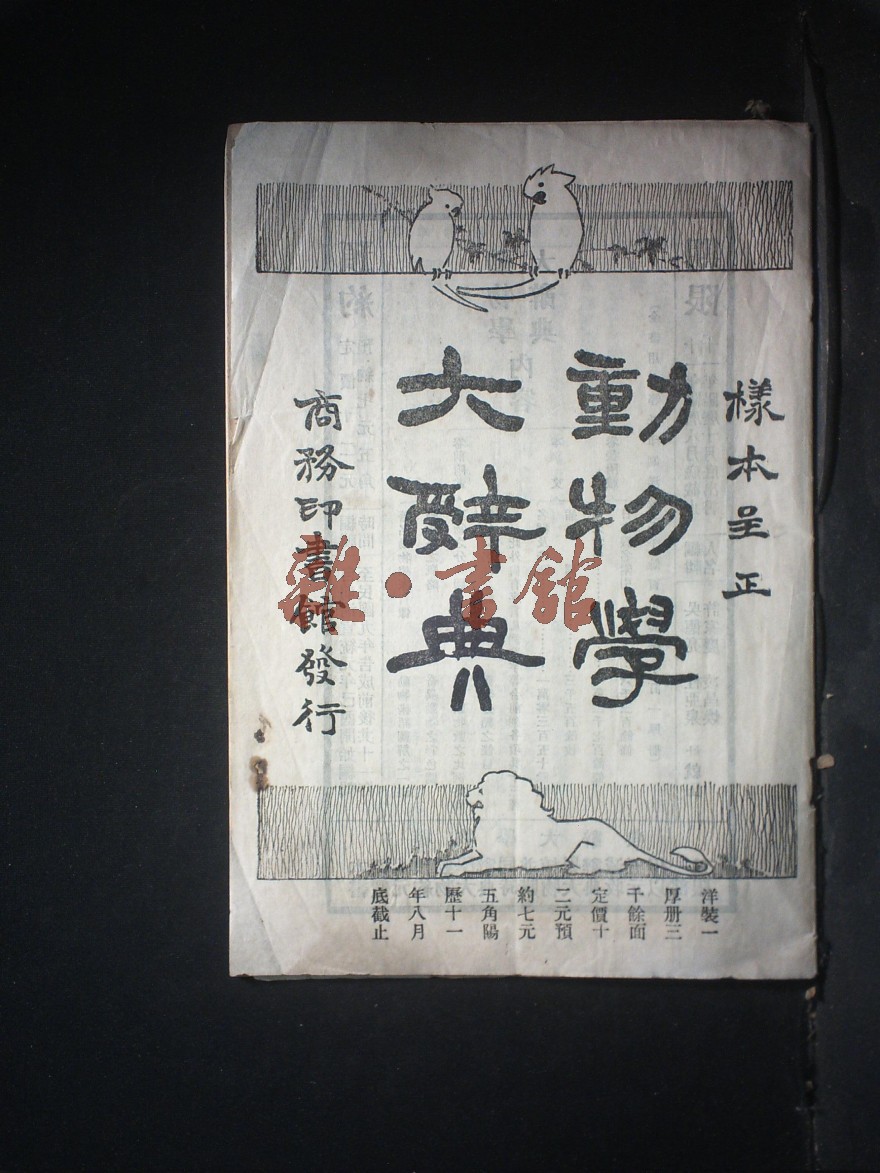 樣本呈正
動物學
大辭典
商務印書館發行
洋裝一
厚册三
千餘面
定價十
二元預
約七元
五角陽
歷十一
年八月
底截止
雜·書館